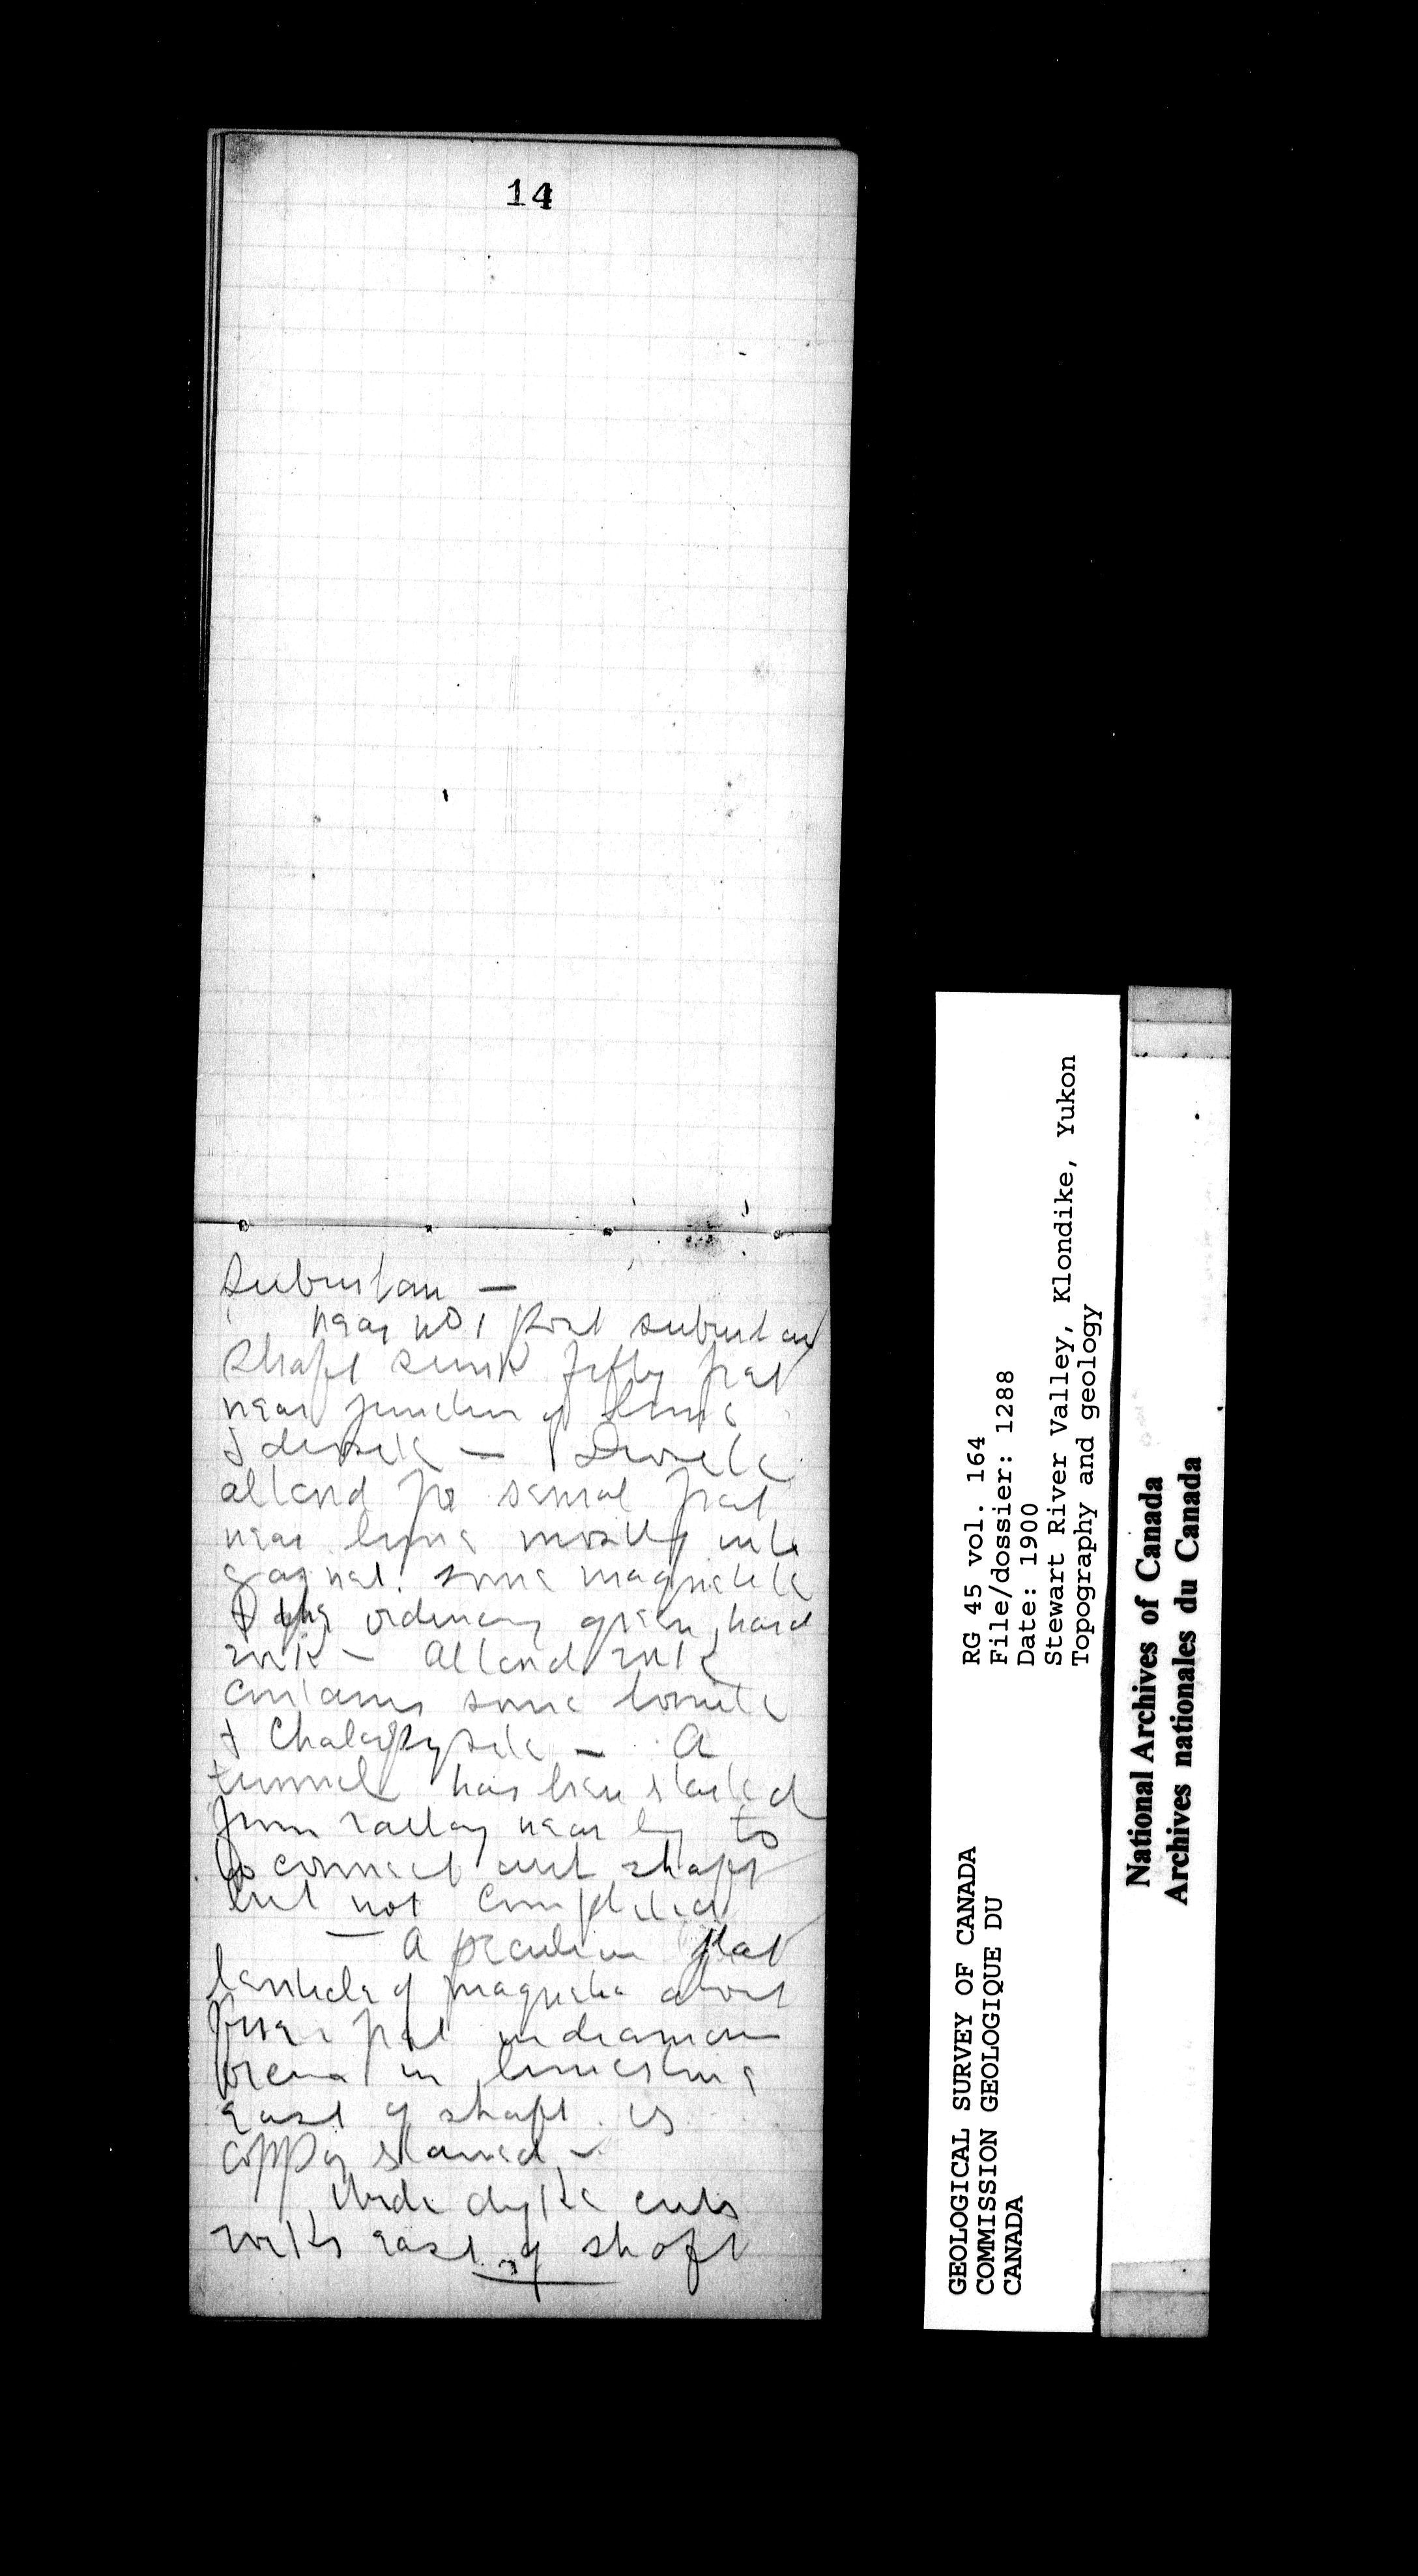 14
Suburban —
near No 1 Post suburban
Shaft sunk fifty feet
near junction of lime
& diorite — Diorite
altered for several feet
near lime mostly into
garnet. some magnetite
& the ordinary green hard
rock — Altered rock
contains some bornite
& Chalcopyrite — A
tunnel has been started
from railway near by to
to connect with shaft
but not completed
— A peculiar flat
lenticle of magnetite about
feet in diameter
in limestone
East of shaft is
copper stained —
Wide dyke cuts
rocks east of shaft
GEOLOGICAL SURVEY OF CANADA
COMMISSION GEOLOGIQUE DU
CANADA
RG 45 vol. 164
File/dossier: 1288
Date: 1900
Stewart River Valley, Klondike, Yukon
Topography and geology
National Archives of Canada
Archives nationales du Canada